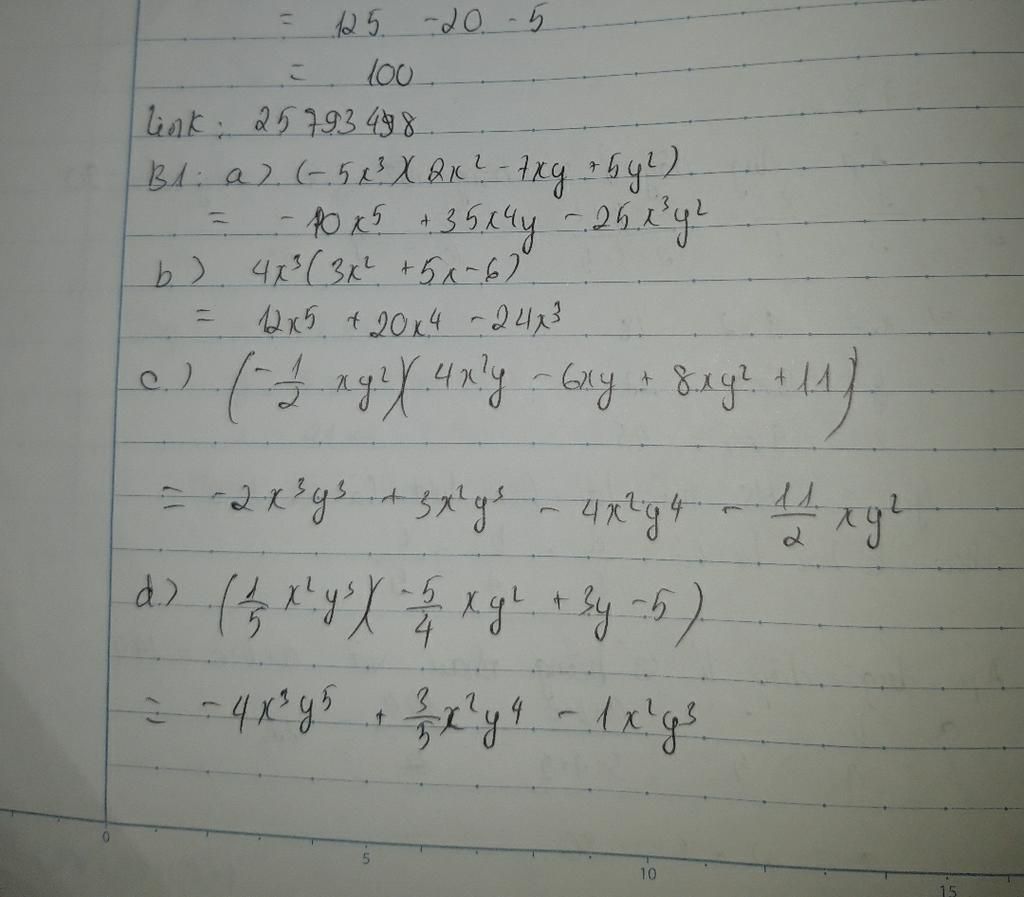 = 125 - 20 - 5
= 100
link: 25793498
B1: a) (-5x³)(2x² - 7xy + 5y²)
= -10x⁵ + 35x⁴y - 25x³y²
b) 4x³(3x² + 5x - 6)
= 12x⁵ + 20x⁴ - 24x³
c) (-1/2 xy²)(4x²y - 6xy + 8xy² + 11)
= -2x³y³ + 3x²y³ - 4x²y⁴ - 11/2 xy²
d) (1/5 x²y³)(-5/4 xy² + 3y - 5)
= -4x³y⁵ + 3/5 x²y⁴ - 1x²y³
0 5 10 15